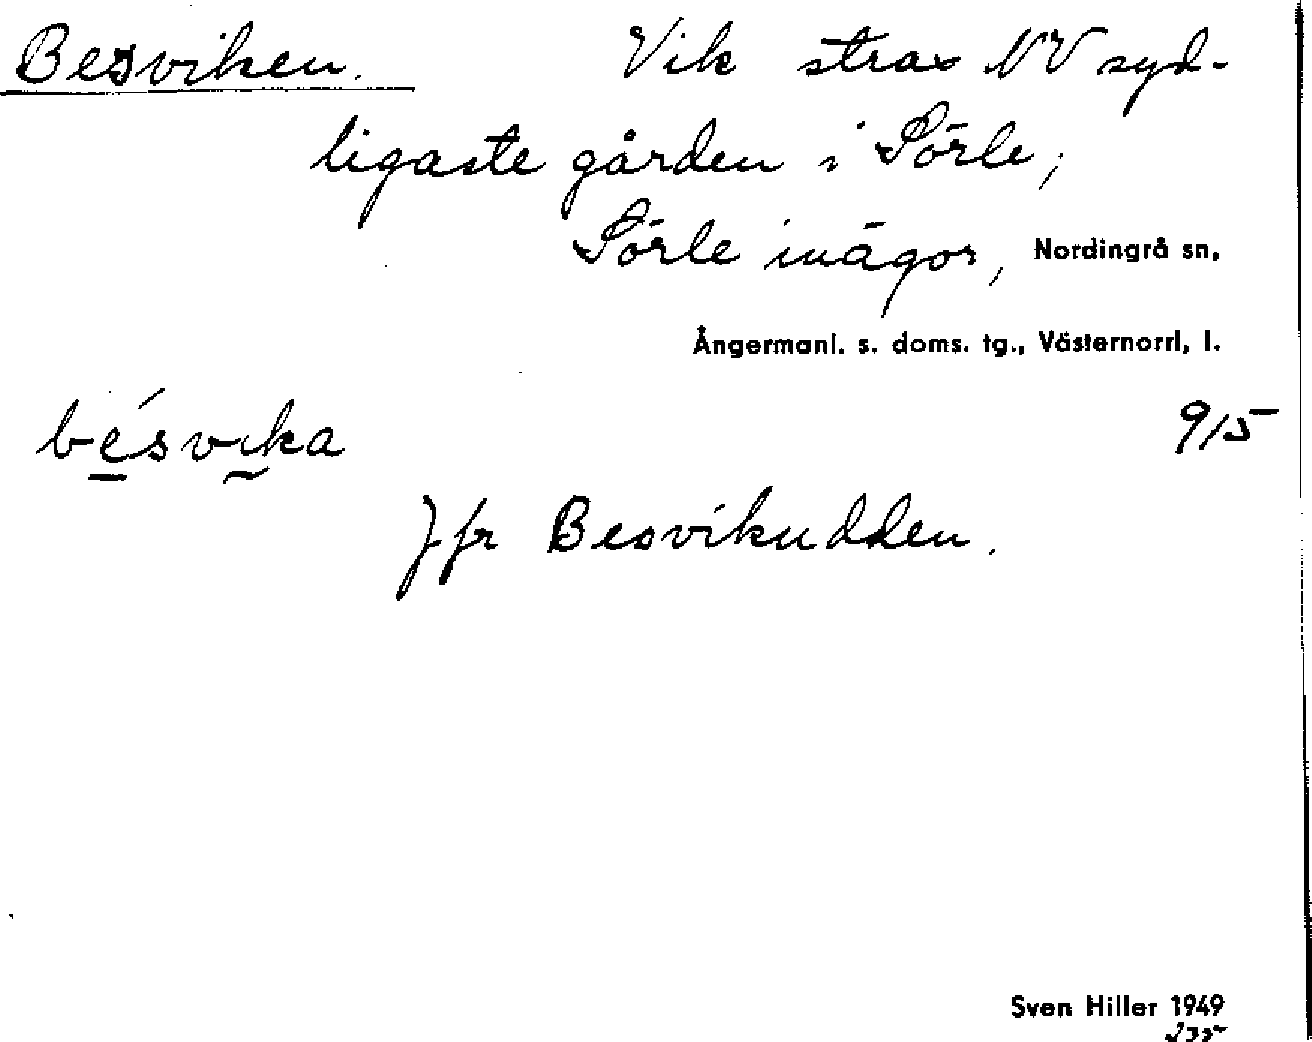 Besviken. Vik strax NV syd-
ligaste gården i Sörle,
Sörle inägor, Nordingrå sn,
Ångermanl. s. doms. tg., Västernorrl, l.
bésvika 915
Jfr Besvikudden.
Sven Hiller 1949